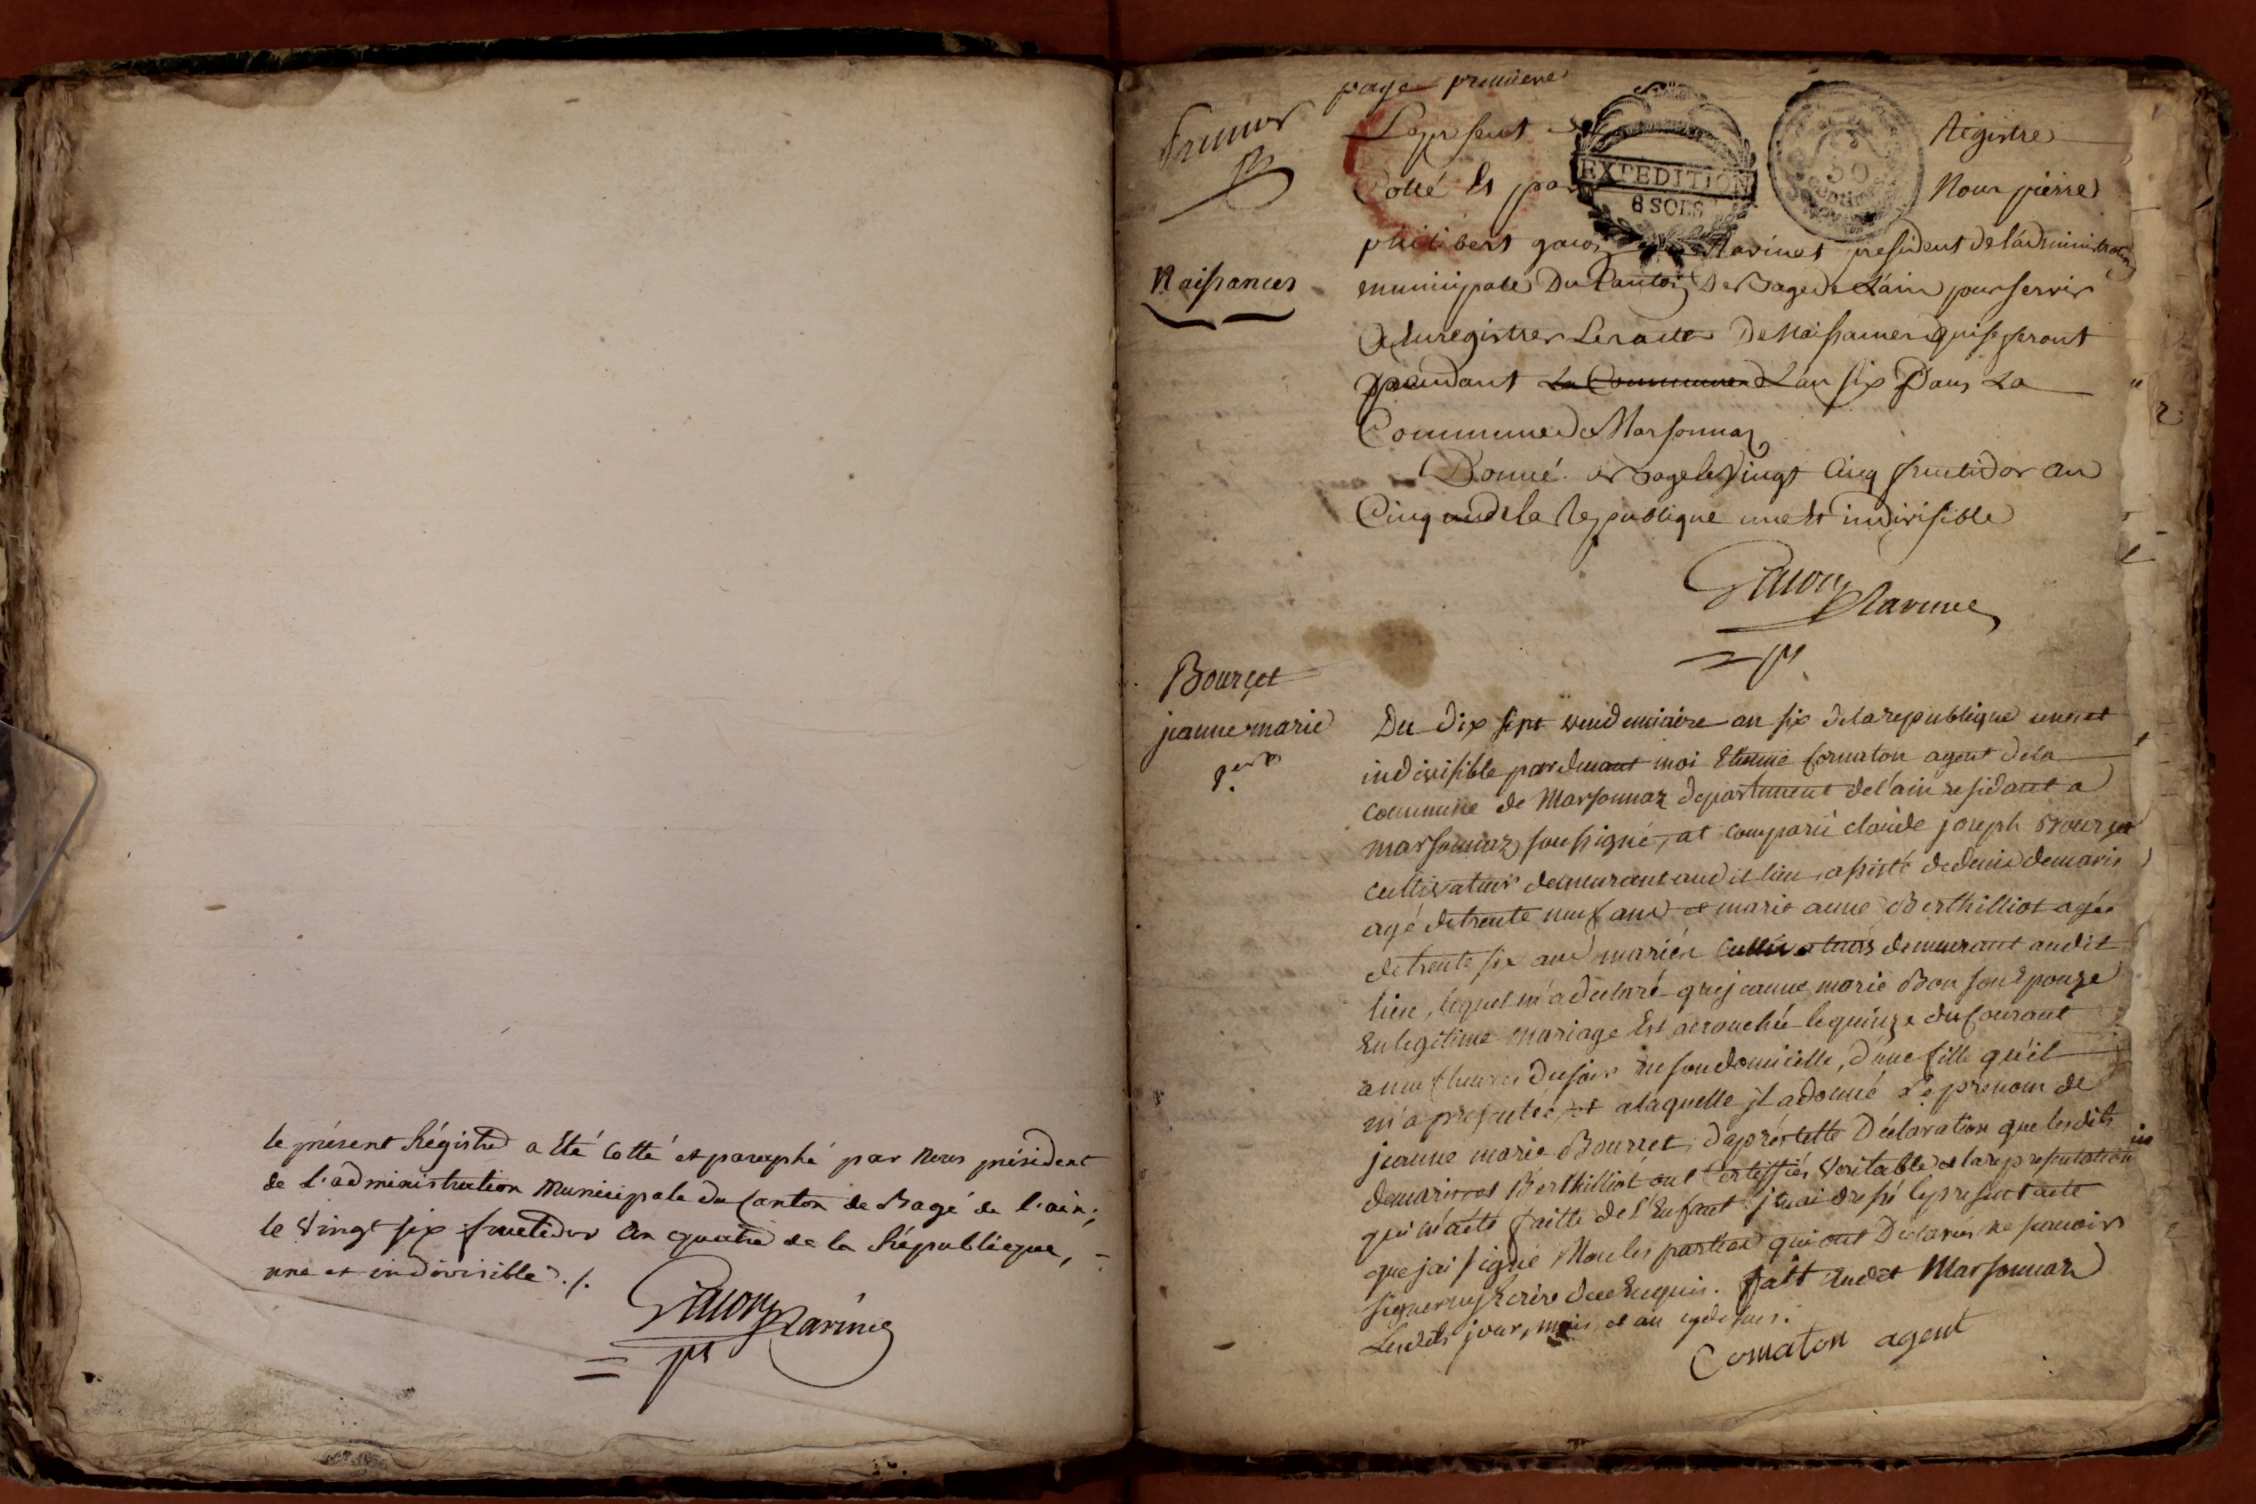 le présent Régistre a Eté Cotté et paraphé par nous président
de L'administration Municipale du Canton de Bagé de l'ain;
le Vingt six fructidor An quatre de la République,
une et indivisible ./.
page premiere
Le present Régistre
Cotté Et par Nous pierre
EXPEDITION
6 SOLS
50
philibert président de l'administration
municipale Du Canton De Bagé De L'ain pour servir
A Enregistrer Les actes De Naissances qui se feront
Naissances
pendant La Commune L'an six Dans La
Commune De Marsonnaz
Donné a Bagé le Vingt Cinq fructidor an
Cinq de la Republique une Et indivisible
Bourcet
jeanne marie
Du dix sept vendemiaire an six de la republique une et
indivisible pardevant moi Etienne Cornaton agent de la
commune de Marsonnaz departement de l'ain residant a
marsonnaz soussigné, at comparu claude joseph Bourcet
cultivateur demeurant au dit lieu, assisté de denis demaris
agé de trente neuf ans et marie anne Berthilliot agée
de trente six ans mariés Cultivateurs demeurant audit
lieu, lequel m'a declaré que jeanne marie Bon son Epouze
En legitime mariage Est accouchée le quinze du Courant
a neuf heures du soir en son domicille, d'une fille qu'il
m'a presentée, et a laquelle jl a donné Le prenom de
jeanne marie Bourcet, d'après cette Déclaration que lesdits
demaris et Berthilliot ont Certiffiés Veritable et la representation
qui m'a été faitte de l'Enfant j'en ai dressé le present acte
que j'ai signé Non les parties qui ont Déclarés ne savoir
signer ny Ecrire de ce Enquis. fait audit Marsonnaz
Lesdits jour, mois et an cydessus.
Cornaton agent